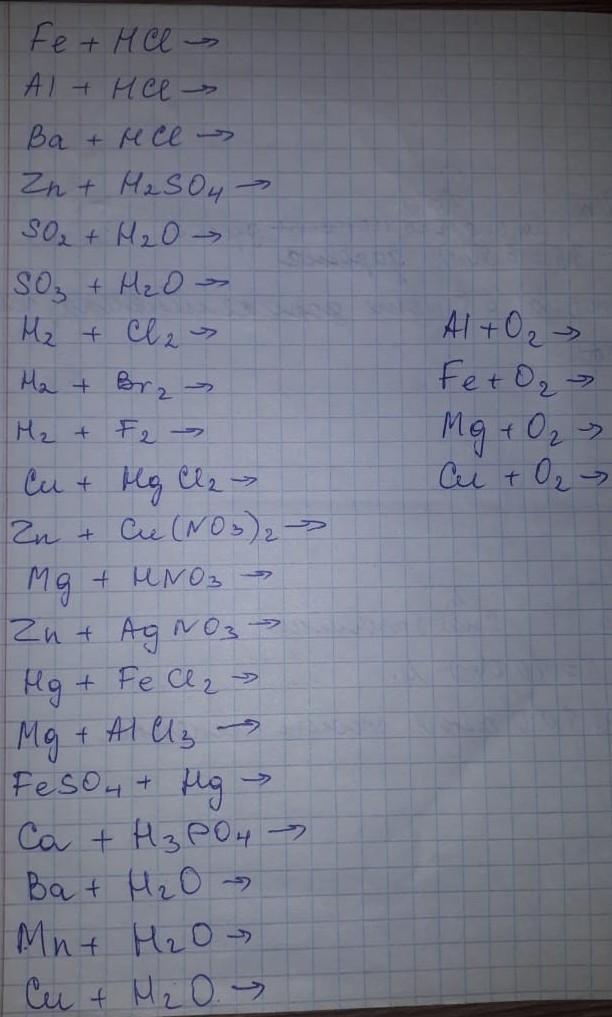 Fe + HCl →
Al + HCl →
Ba + HCl →
Zn + H₂SO₄ →
SO₂ + H₂O →
SO₃ + H₂O →
H₂ + Cl₂ →
H₂ + Br₂ →
H₂ + F₂ →
Cu + HgCl₂ →
Zn + Cu(NO₃)₂ →
Mg + HNO₃ →
Zn + AgNO₃ →
Hg + FeCl₂ →
Mg + AlCl₃ →
FeSO₄ + Hg →
Ca + H₃PO₄ →
Ba + H₂O →
Mn + H₂O →
Cu + H₂O →
Al + O₂ →
Fe + O₂ →
Mg + O₂ →
Cu + O₂ →